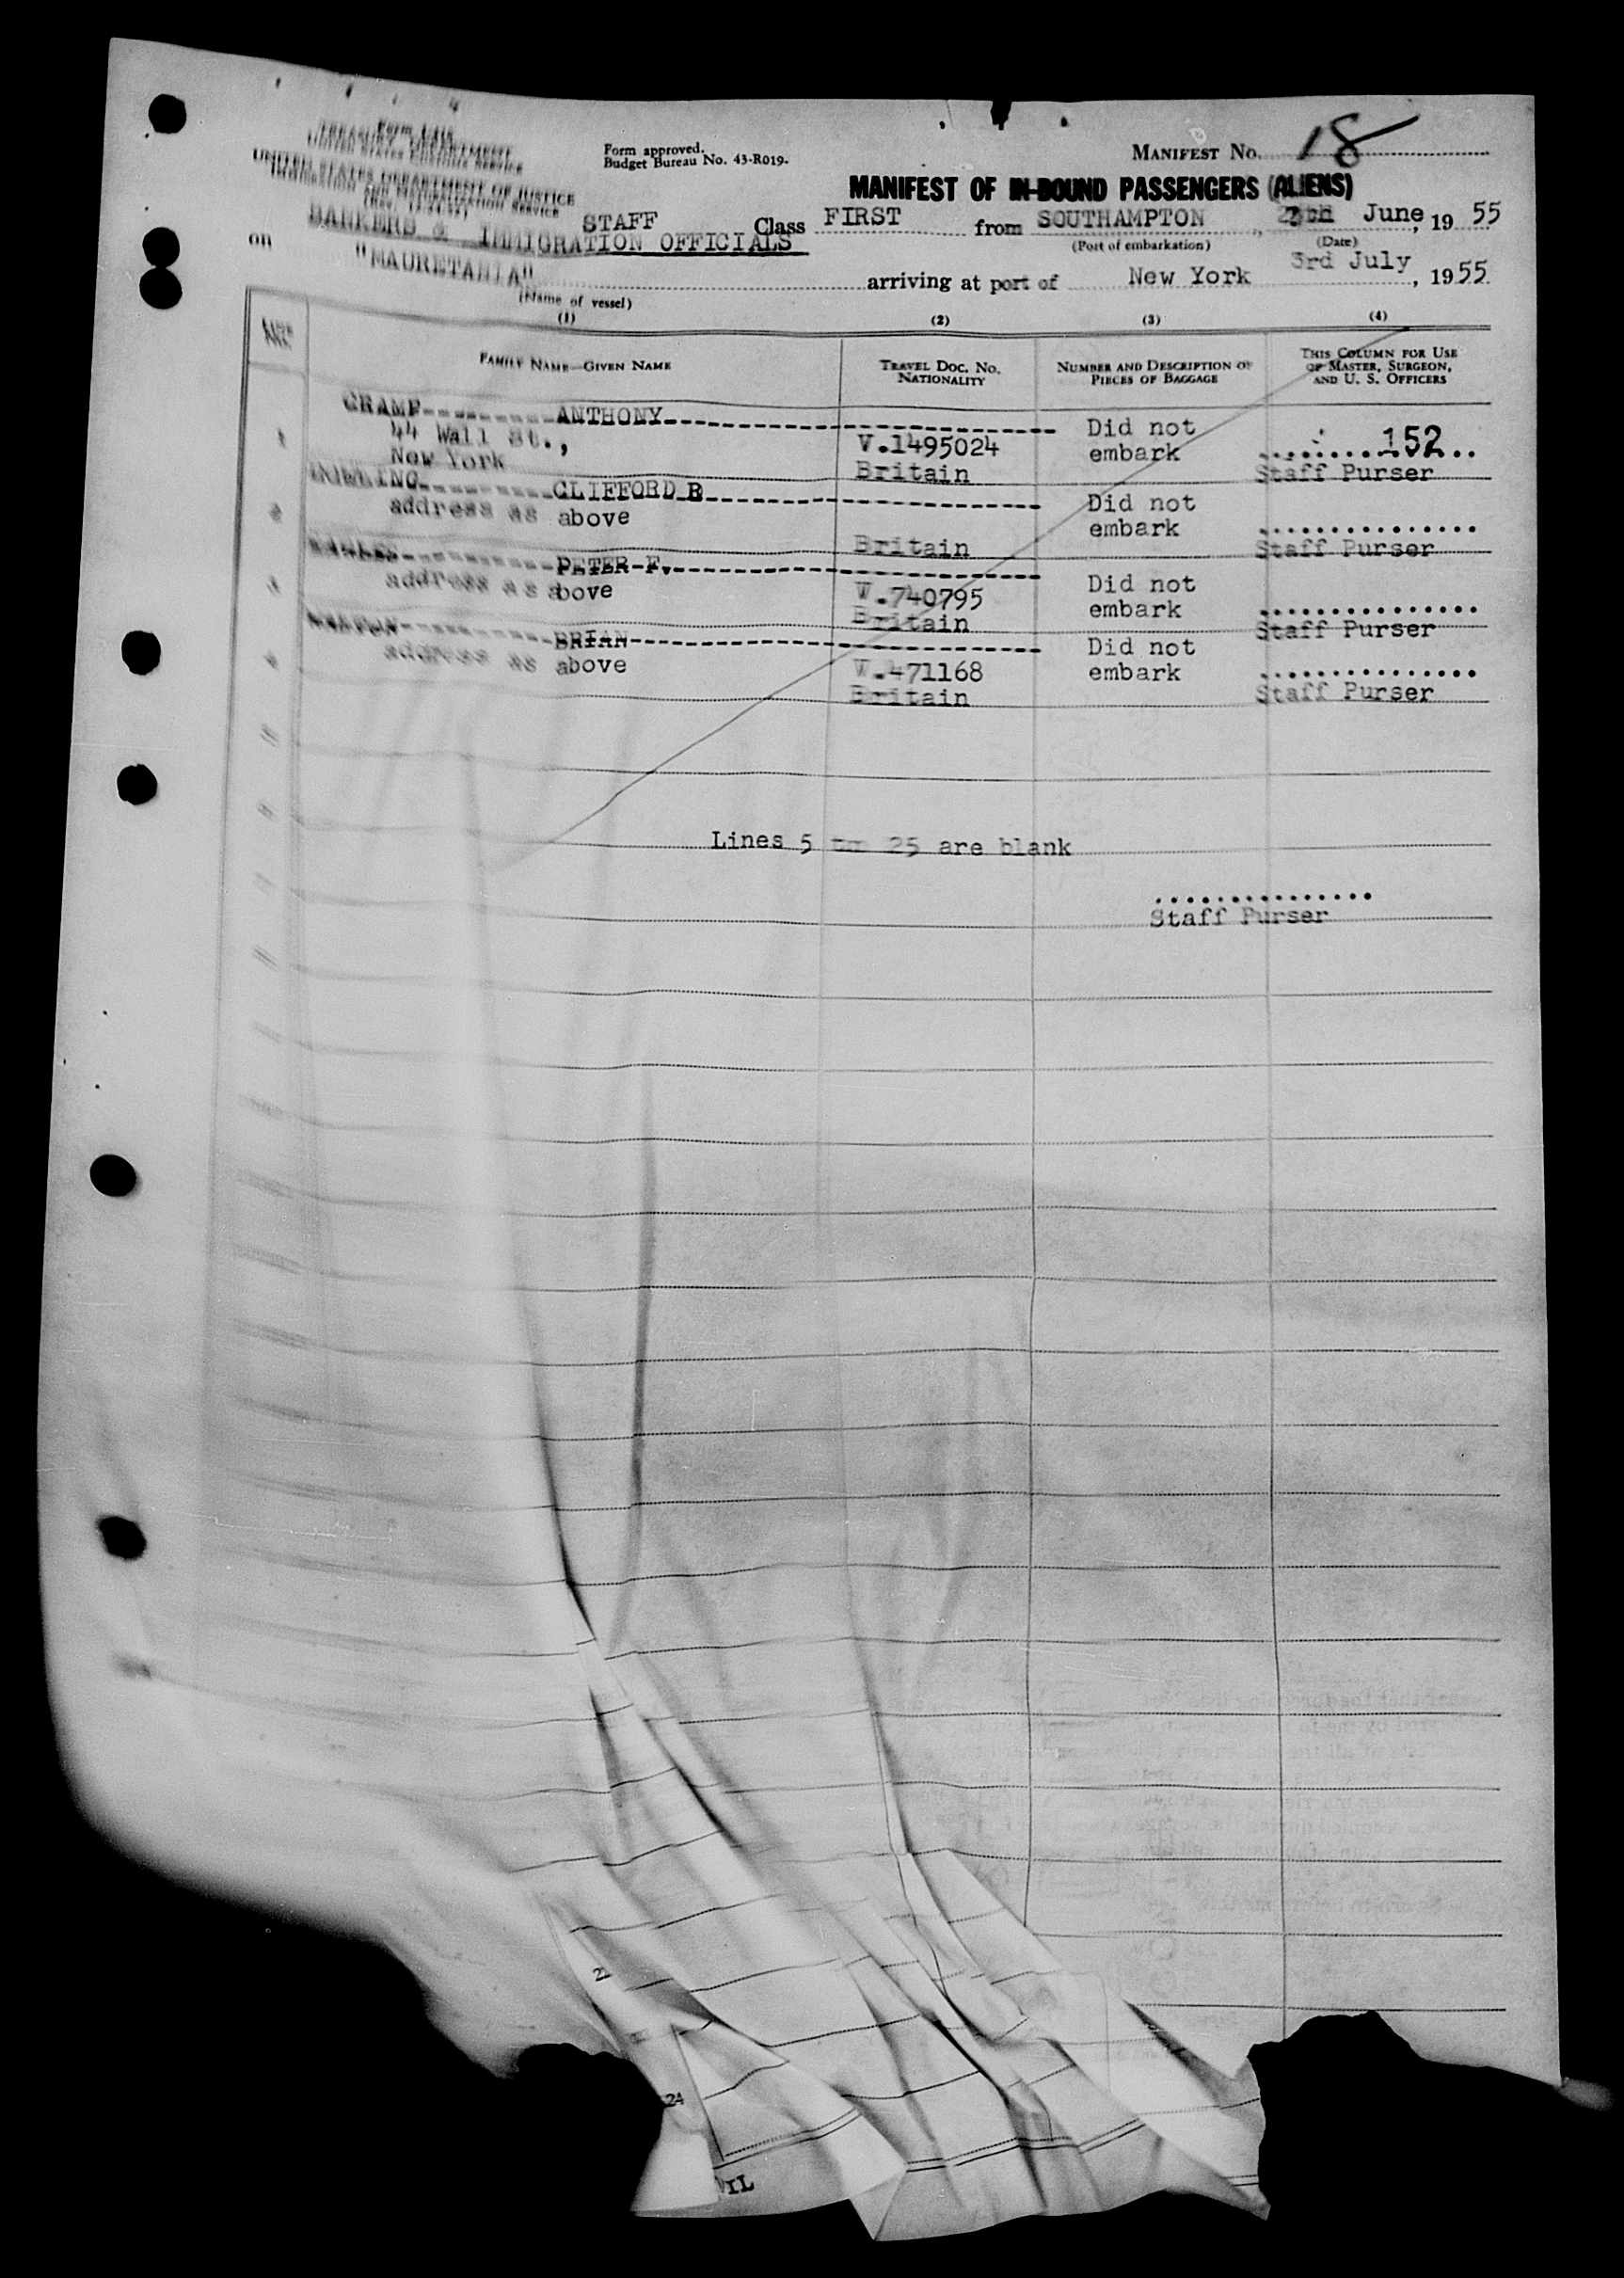 Form I-418
TREASURY DEPARTMENT
United States Customs Service
UNITED STATES DEPARTMENT OF JUSTICE
Immigration and Naturalization Service
Form approved.
Budget Bureau No. 43-R019.
MANIFEST NO. 18
MANIFEST OF IN-BOUND PASSENGERS (ALIENS)
STAFF
BANKERS & IMMIGRATION OFFICIALS
Class FIRST from SOUTHAMPTON, June, 1955
(Port of embarkation) (Date)
on "MAURETANIA" arriving at port of New York 3rd July, 1955
(Name of vessel)
(1) (2) (3) (4)
LINE NO.
FAMILY NAME—GIVEN NAME
TRAVEL DOC. NO.
NATIONALITY
NUMBER AND DESCRIPTION OF
PIECES OF BAGGAGE
THIS COLUMN FOR USE
OF MASTER, SURGEON,
AND U. S. OFFICERS
1 CRAMP ANTHONY Did not
44 Wall St., V.1495024 embark 152
New York Britain Staff Purser
2 CLIFFORD B Did not
address as above embark
Britain Staff Purser
3 PETER F. Did not
address as above W.740795 embark
Britain Staff Purser
4 BRIAN Did not
address as above W.471168 embark
Britain Staff Purser
Lines 5 to 25 are blank
Staff Purser
22
24